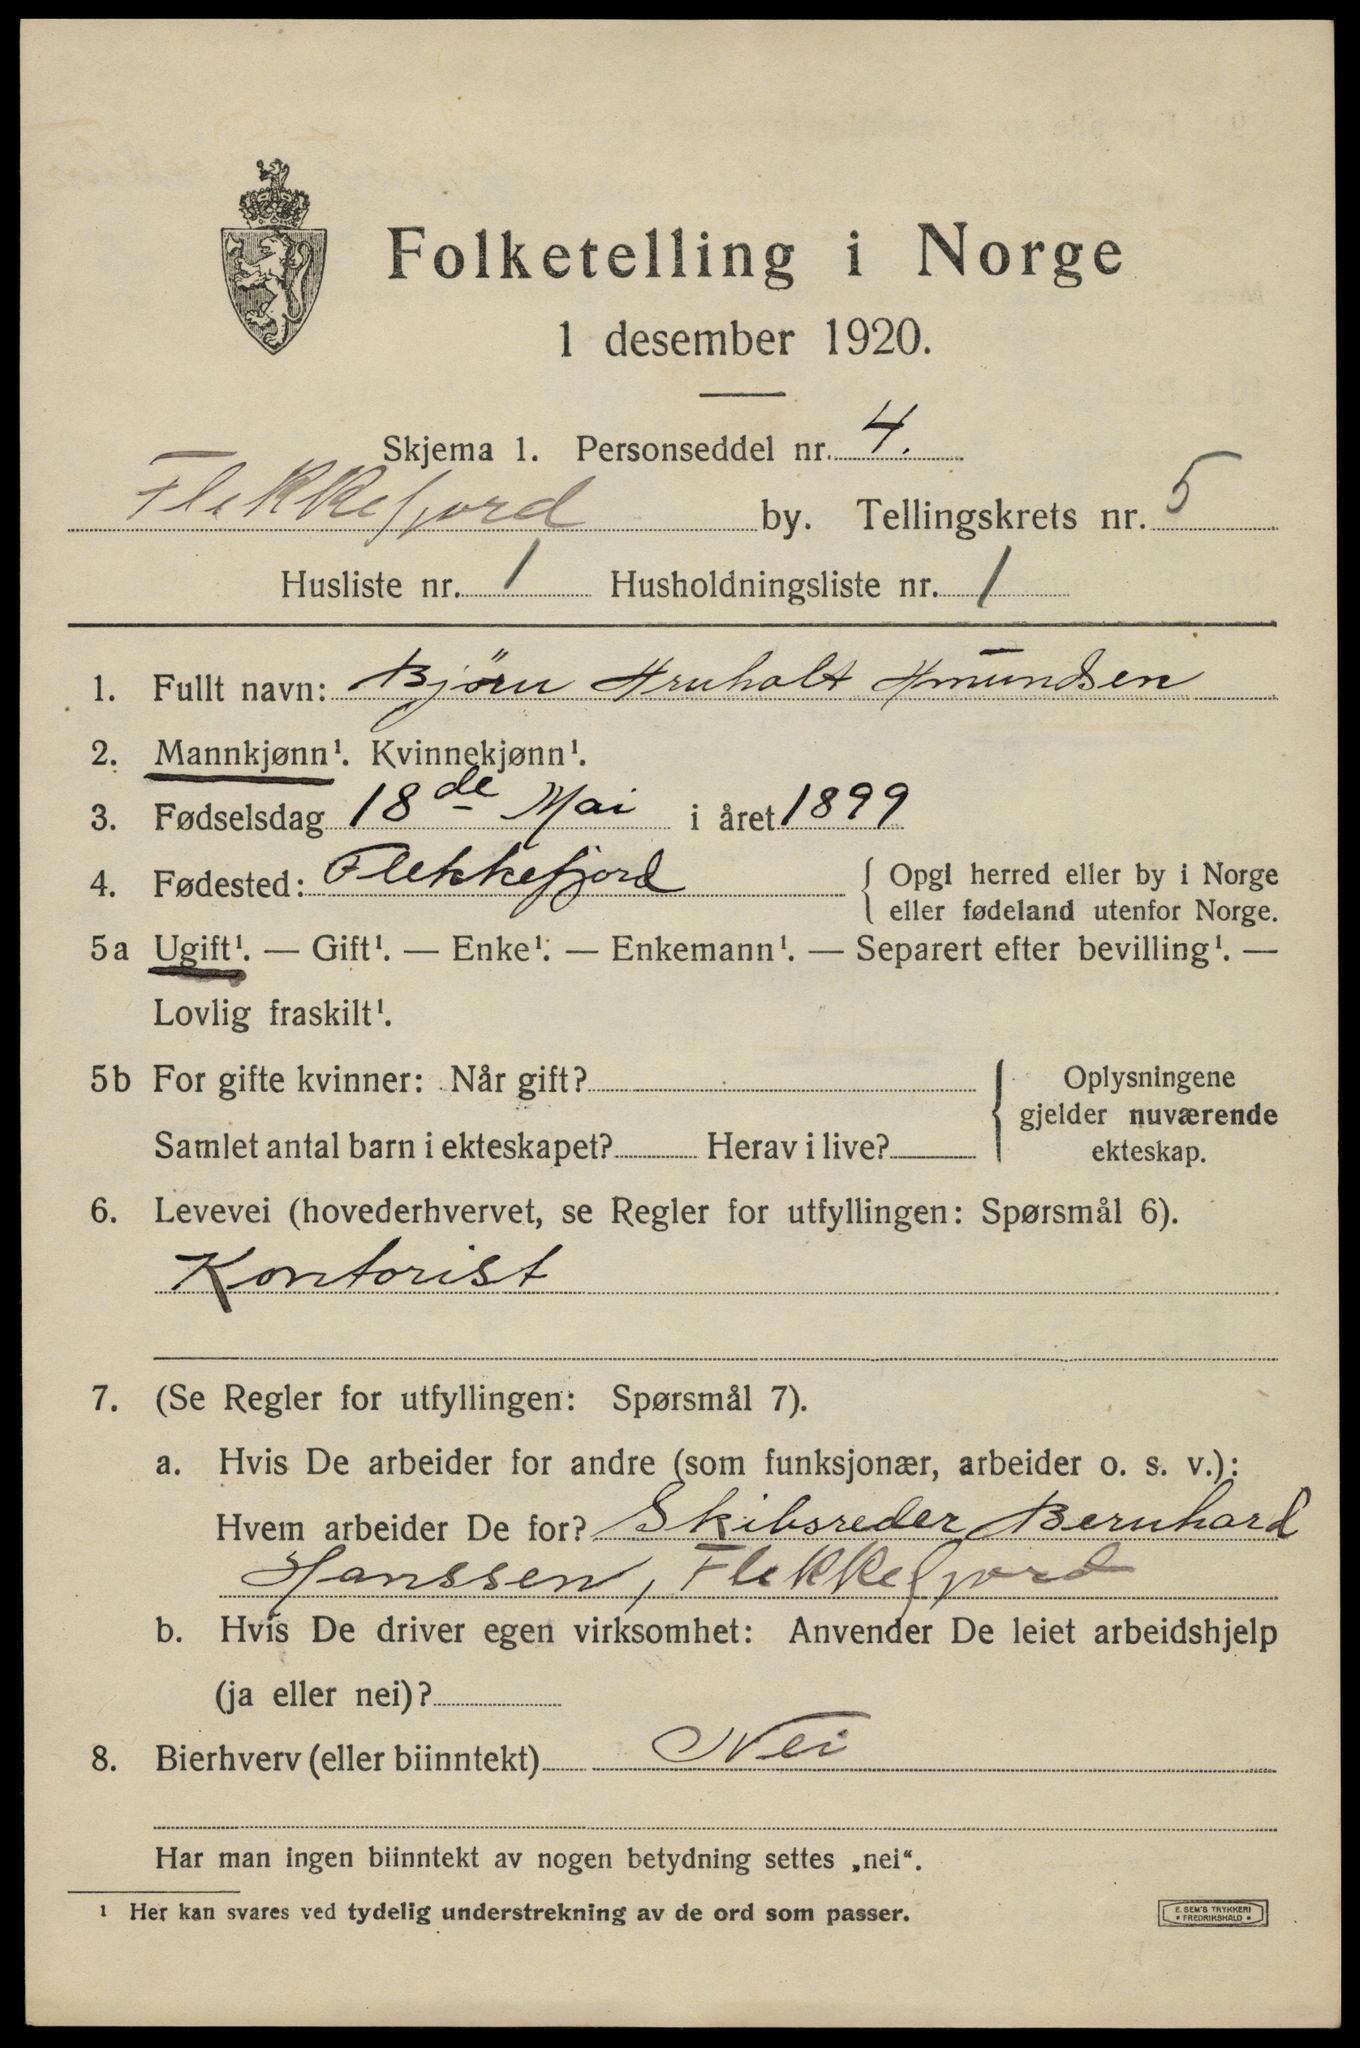 Folketelling i Norge
1 desember 1920.
Skjema 1. Personseddel nr. 4.
Flekkefjord by. Tellingskrets nr. 5
Husliste nr. 1 Husholdningsliste nr. 1
1. Fullt navn: Bjørn Aruholt Amundsen
2. Mannkjønn¹. Kvinnekjønn¹.
3. Fødselsdag 18de Mai i året 1899
4. Fødested: Flekkefjord { Opgl herred eller by i Norge
eller fødeland utenfor Norge.
5a Ugift¹. — Gift¹. — Enke¹. — Enkemann¹. — Separert efter bevilling¹. —
Lovlig fraskilt¹.
5b For gifte kvinner: Når gift? { Oplysningene
gjelder nuværende
Samlet antal barn i ekteskapet? Herav i live? ekteskap.
6. Levevei (hovederhvervet, se Regler for utfyllingen: Spørsmål 6).
Kontorist
7. (Se Regler for utfyllingen: Spørsmål 7).
a. Hvis De arbeider for andre (som funksjonær, arbeider o. s. v.):
Hvem arbeider De for? Skibsreder Bernhard
Hanssen, Flekkefjord
b. Hvis De driver egen virksomhet: Anvender De leiet arbeidshjelp
(ja eller nei)?
8. Bierhverv (eller biinntekt) Nei
Har man ingen biinntekt av nogen betydning settes „nei“.
¹ Her kan svares ved tydelig understrekning av de ord som passer.
E. SEM'S TRYKKERI
• FREDRIKSHALD •